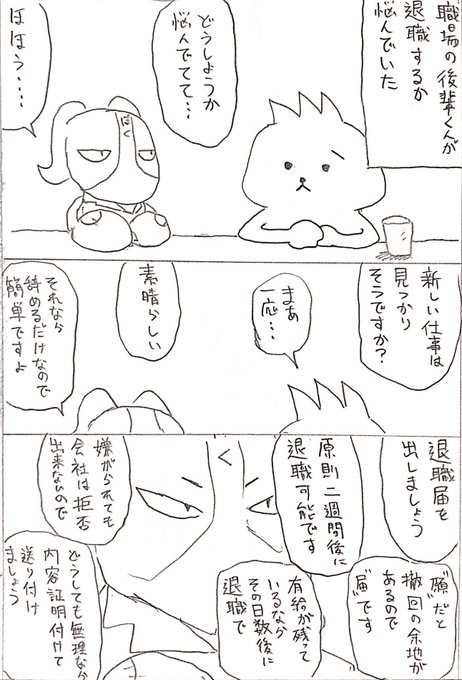 職場の後輩くんが
退職するか
悩んでいた
どうしようか
悩んでてて…
ほほう・・・・
はく
新しい仕事は
見つかり
そうですか?
まあ
一応…
素晴らしい
それなら
辞めるだけなので
簡単ですよ
退職届を
出しましょう
"願"だと
撤回の余地が
あるので
"届"です
原則二週間後に
退職可能です
有給が残って
いるなら
その日数後に
退職で
嫌がられても
会社は拒否
出来ないので
どうしても無理なら
内容証明付けて
送り付け
ましょう